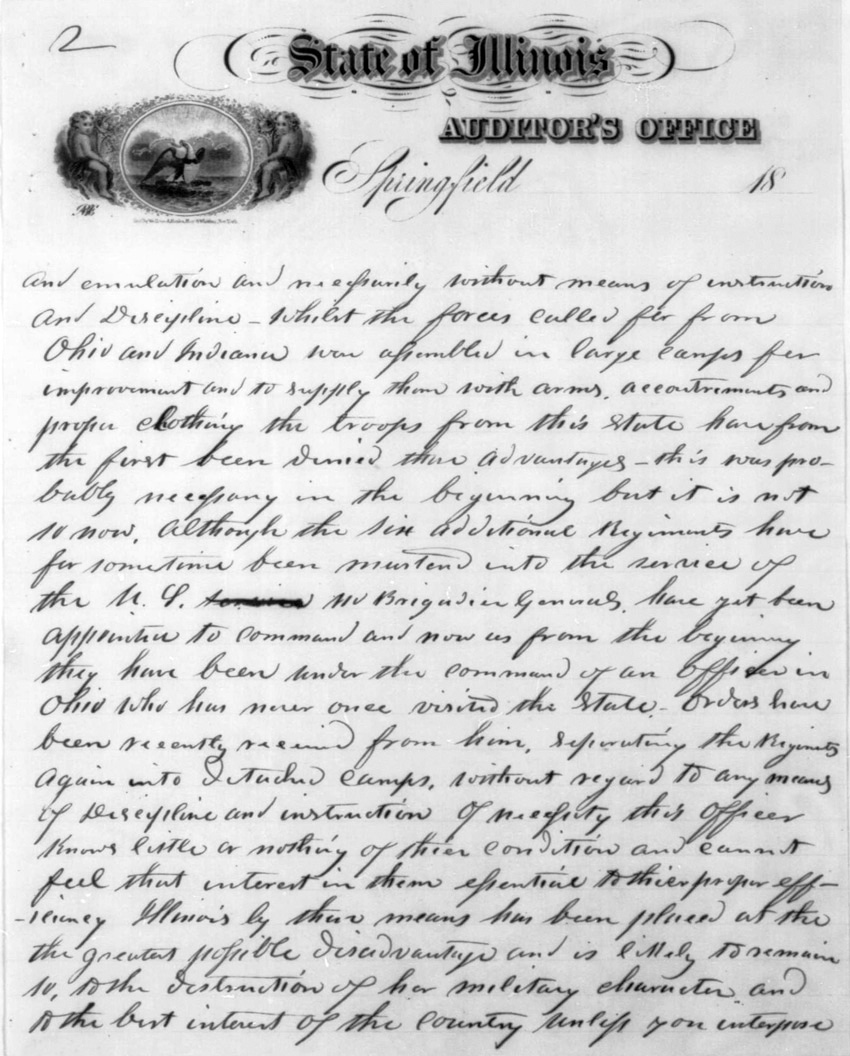 2
State of Illinois
AUDITOR'S OFFICE
Springfield 18
and emulation and necessarily without means of instruction
and Discipline – Whilst the forces called for from
Ohio and Indiana were assembled in large camps for
improvement and to supply them with arms, accoutrements and
proper clothing the troops from this State have from
the first been denied these advantages – this was pro-
bably necessary in the beginning but it is not
so now, Although the six additional Regiments have
for sometime been mustered into the service of
the U. S. no Brigadier Generals, have yet been
appointed to command and now as from the beginning
they have been under the command of an officer in
Ohio who has never once visited the State – Orders have
been recently received from him, separating the Regiments
again into detached camps, without regard to any means
of Discipline and instruction Of necessity this officer
knows little or nothing of their condition and cannot
feel that interest in them essential to their proper eff-
-iciency Illinois by these means has been placed at the
the greatest possible disadvantage and is likely to remain
so, to the destruction of her military character and
to the best interest of the country unless you interpose